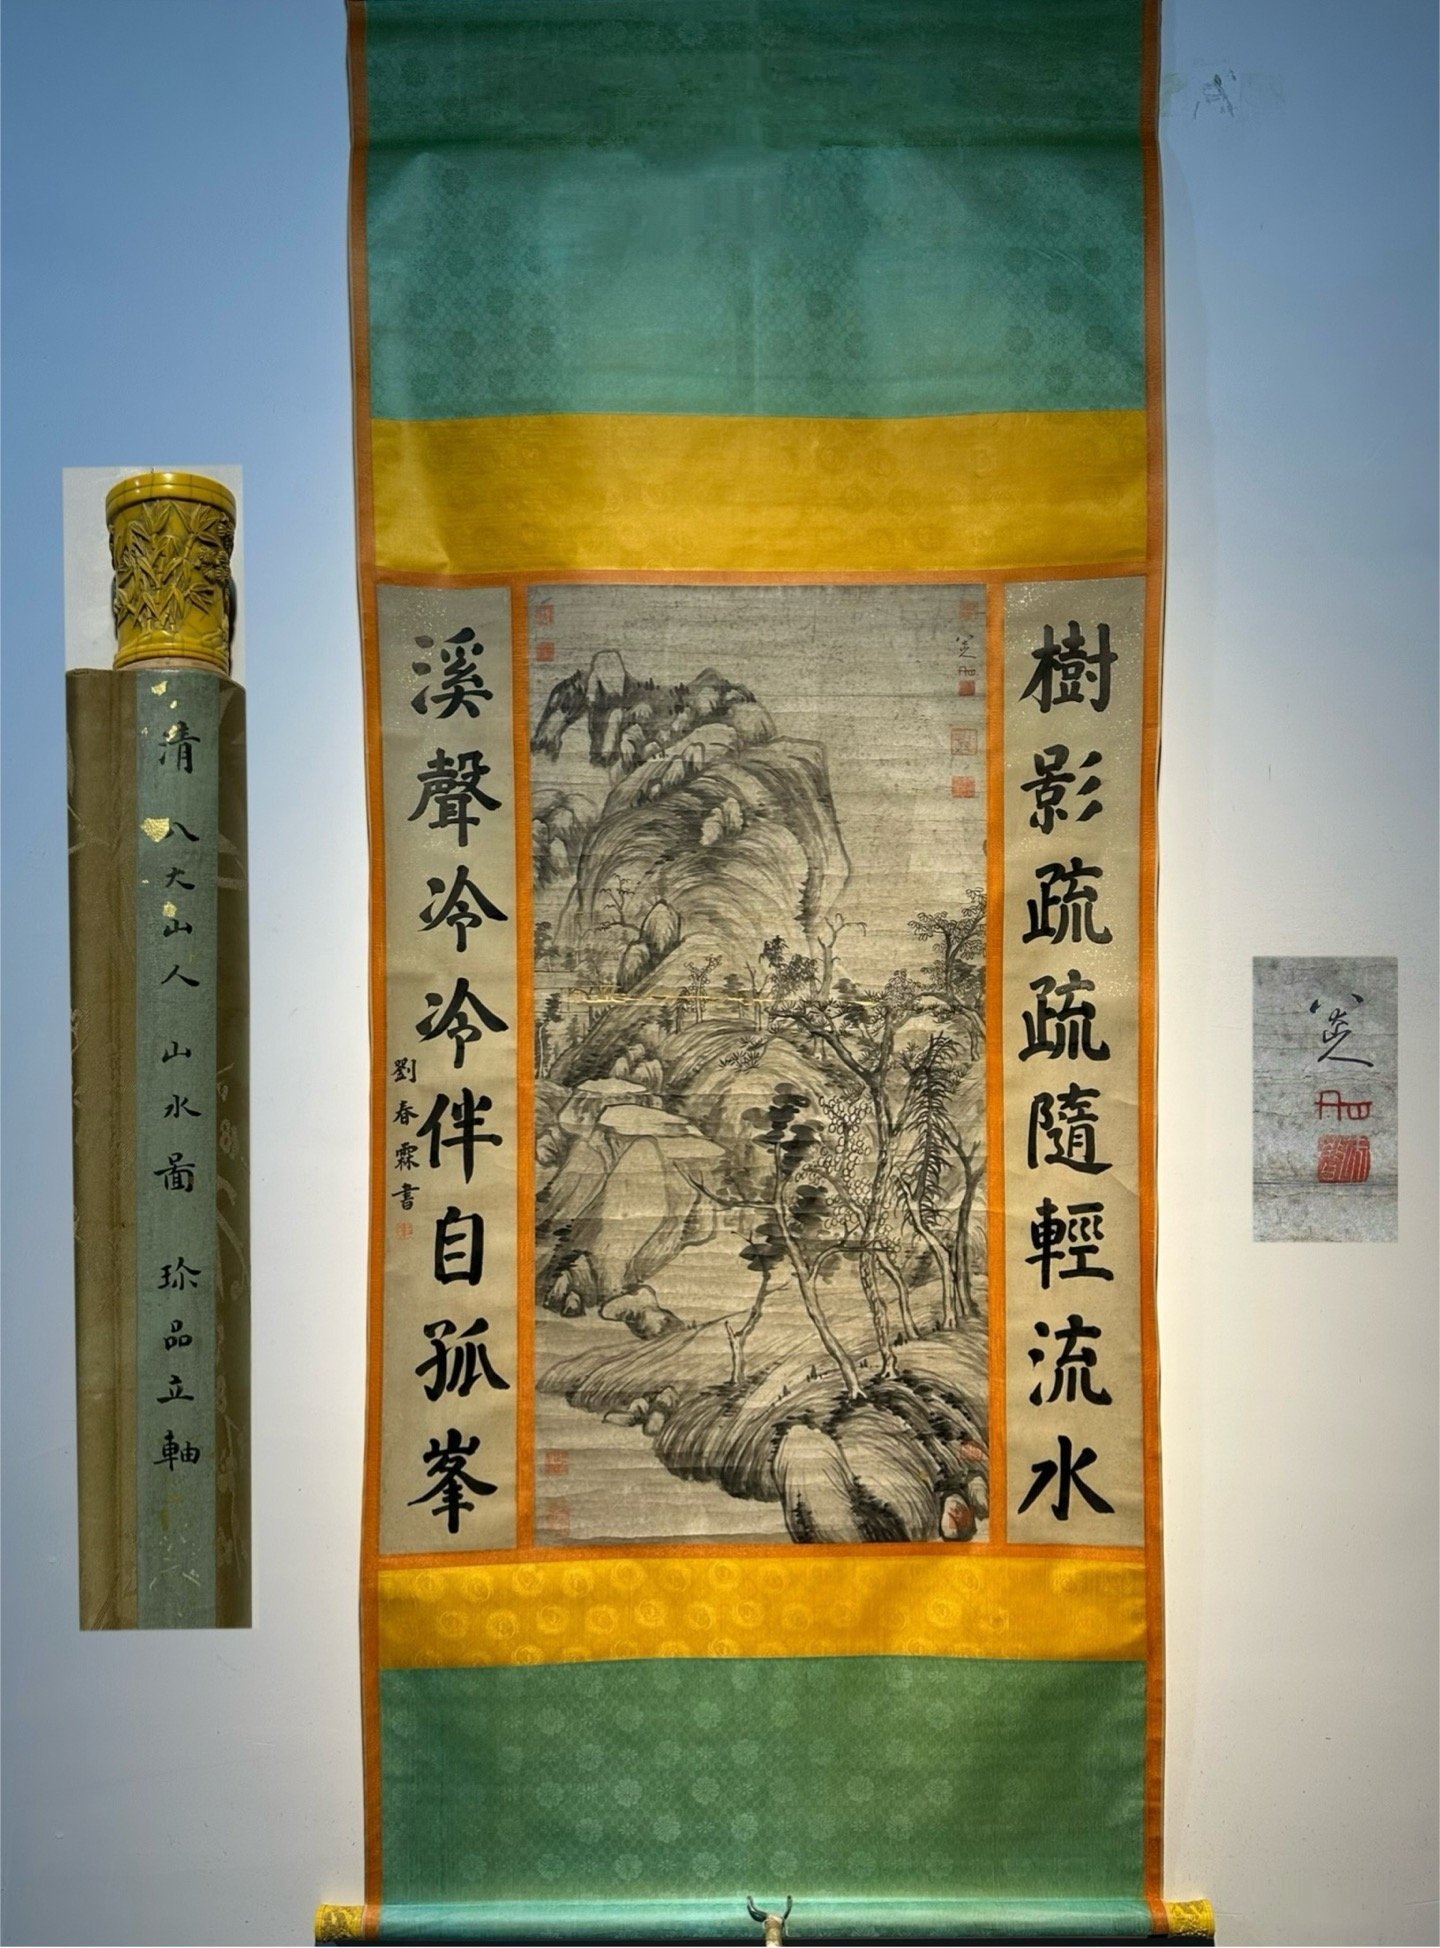 樹影疏疏隨輕流水
溪聲泠泠伴自孤峯
劉春霖書
清 八大山人 山水圖 珍品立軸
八大山人